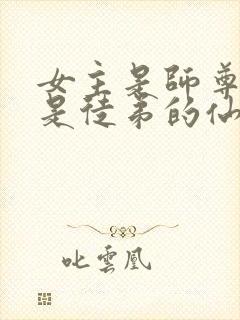 女主是師尊
是徒弟的仙
叱雲凰